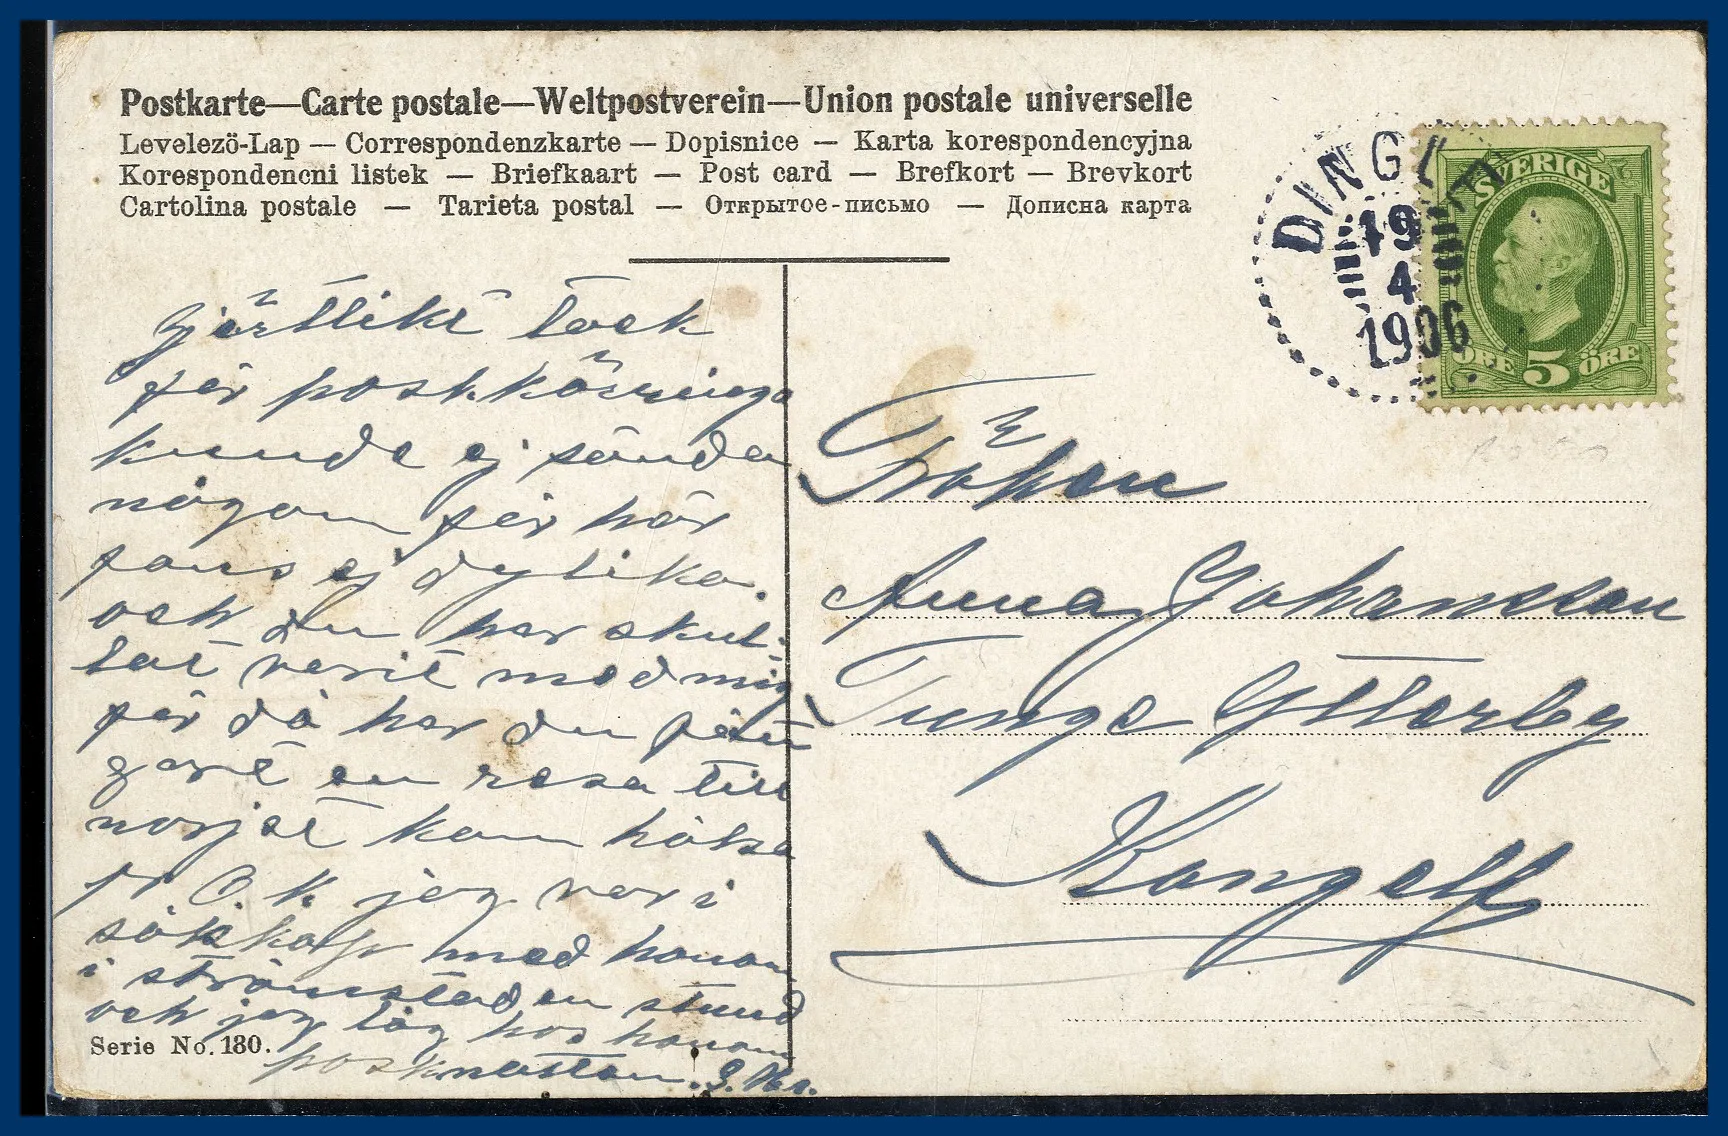 Postkarte—Carte postale—Weltpostverein—Union postale universelle
Levelező-Lap — Correspondenzkarte — Dopisnice — Karta korespondencyjna
Korespondencni listek — Briefkaart — Post card — Brefkort — Brevkort
Cartolina postale — Tarieta postal — Открытое-письмо — Дописна карта
DINGL
19
4
1906
SVERIGE
ÖRE 5 ÖRE
järtlikt tack
för
kunde ej sända
någon för här
fans ej dylika.
och du har skul-
lat varit med mig
för då har du fått
gort en resa till
norjet kan hälsa
fr O. K. jag var i
med honom
i strömstad en stund
och jag låg hos honom
postnatten.
Serie No. 130.
Fröken
Anna Johansson
Tunge Ytterby
Kongelf